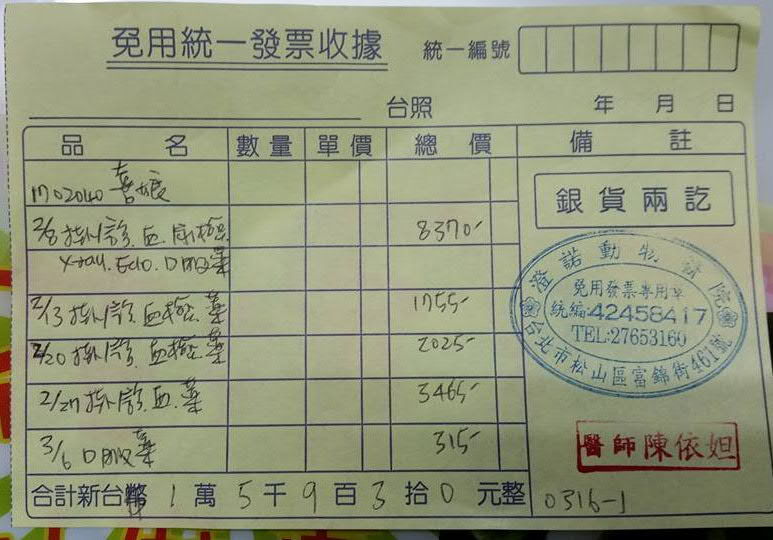 免用統一發票收據
統一編號
台照 年 月 日
品名 數量 單價 總價 備註
1702040 喜娘
2/8 掛診.血.尿檢 8370-
X-ray. Echo. 口服藥
2/13 掛診.血檢.藥 1755-
2/20 掛診.血檢.藥 2025-
2/27 掛診.血.藥 3465-
3/6 口服藥 315-
合計新台幣 1 萬 5 千 9 百 3 拾 0 元整
銀貨兩訖
澄諾動物醫院
免用發票專用章
統編:42458417
TEL:27653160
台北市松山區富錦街461號
醫師陳依妲
0316-1